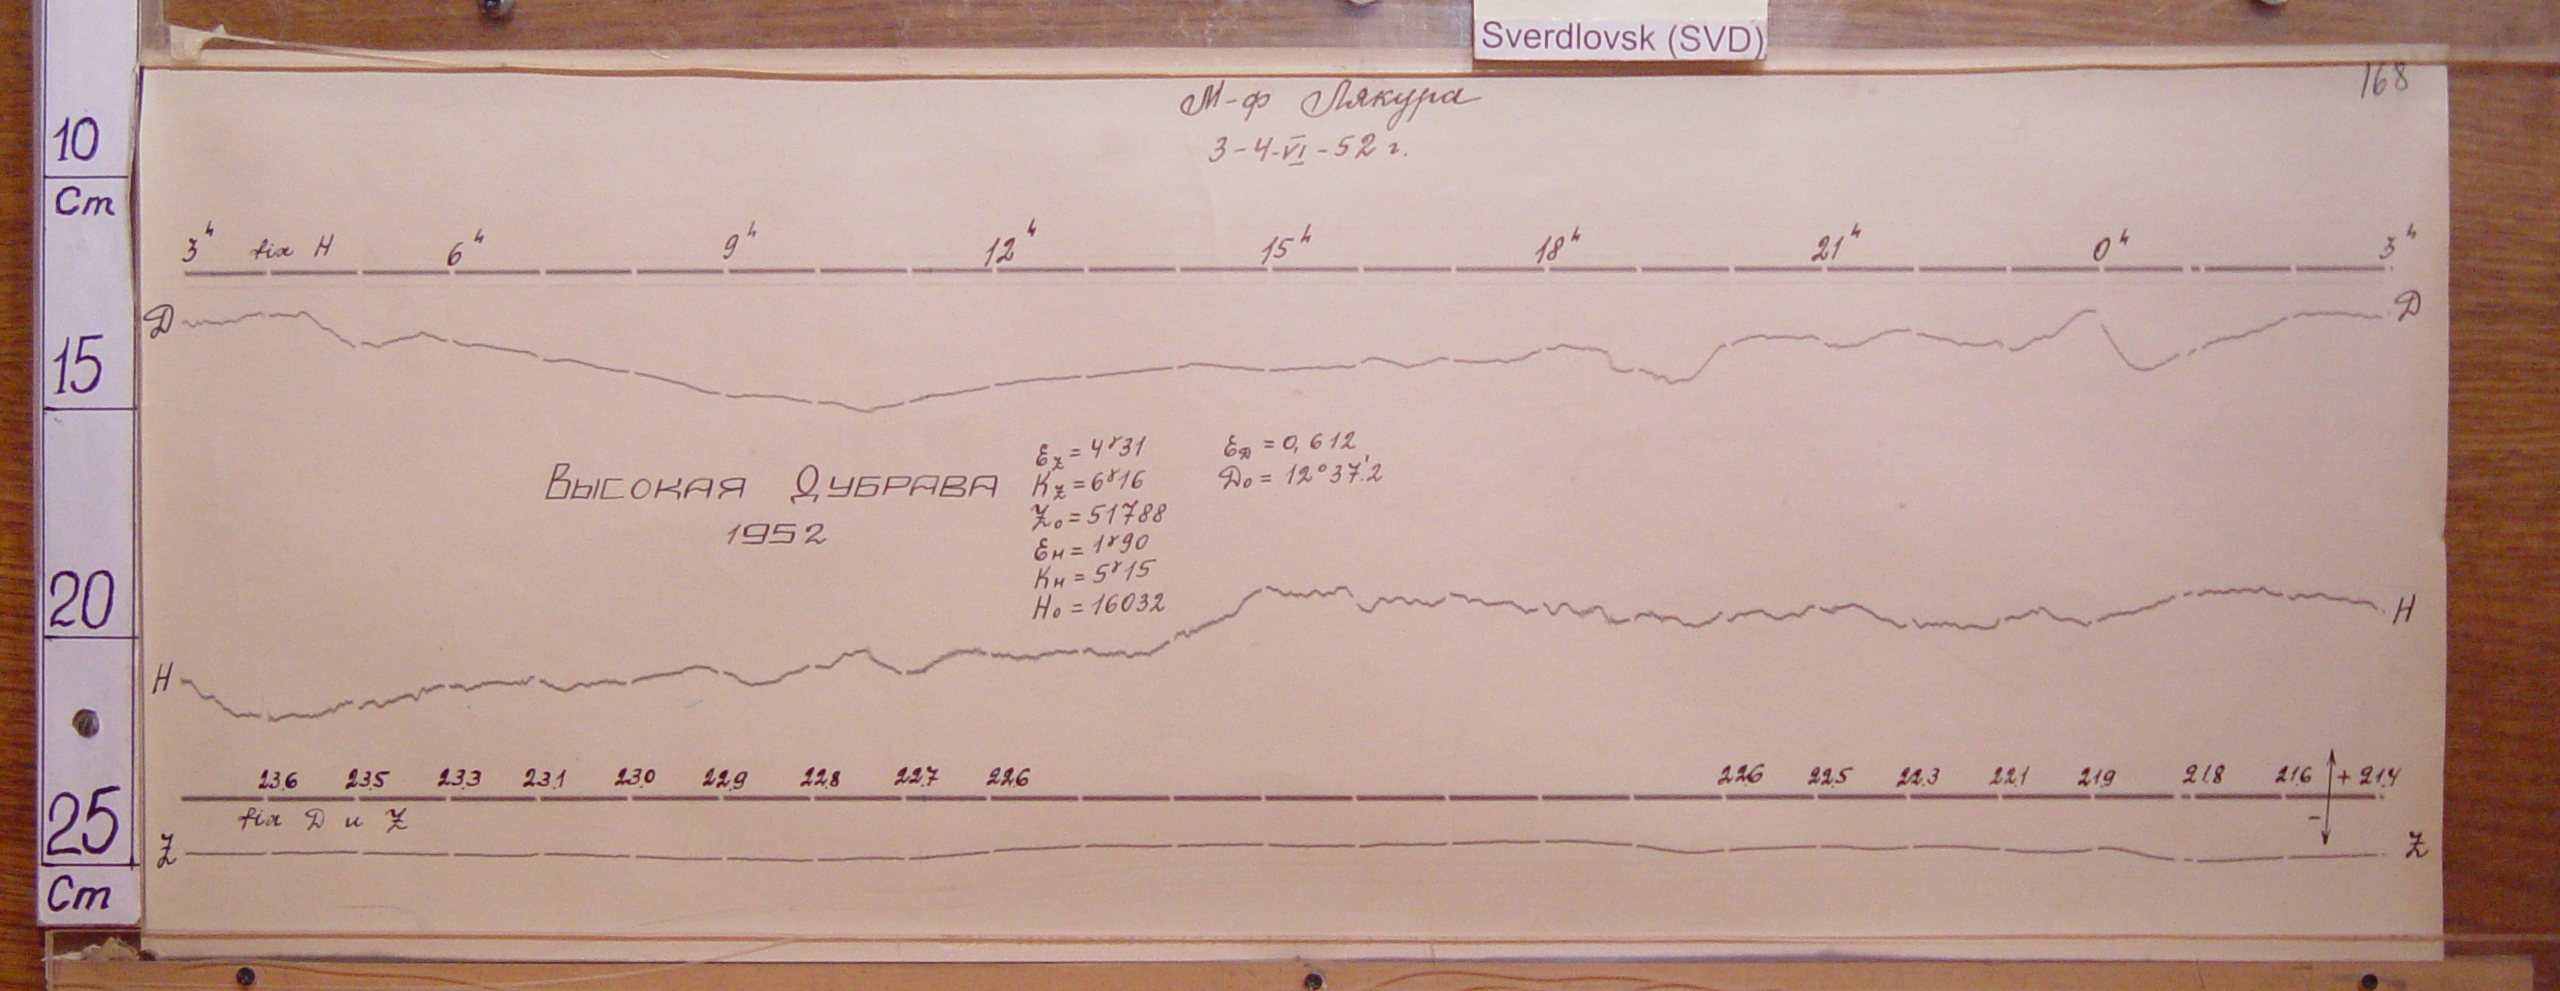 Sverdlovsk (SVD)
168
М-ф Лякура
3-4-VI-52 г.
10
Cm
15
20
25
Cm
3ʰ fix H 6ʰ 9ʰ 12ʰ 15ʰ 18ʰ 21ʰ 0ʰ 3ʰ
Д Д
Высокая Дубрава
1952
Ez = 4ᵞ31
Kz = 6ᵞ16
Z₀ = 51788
Eн = 1ᵞ90
Kн = 5ᵞ15
H₀ = 16032
EД = 0,612
Д₀ = 12°37'.2
H H
23.6 23.5 23.3 23.1 23.0 22.9 22.8 22.7 22.6 22.6 22.5 22.3 22.1 21.9 21.8 21.6 + 21.4
fix Д и Z -
Z Z